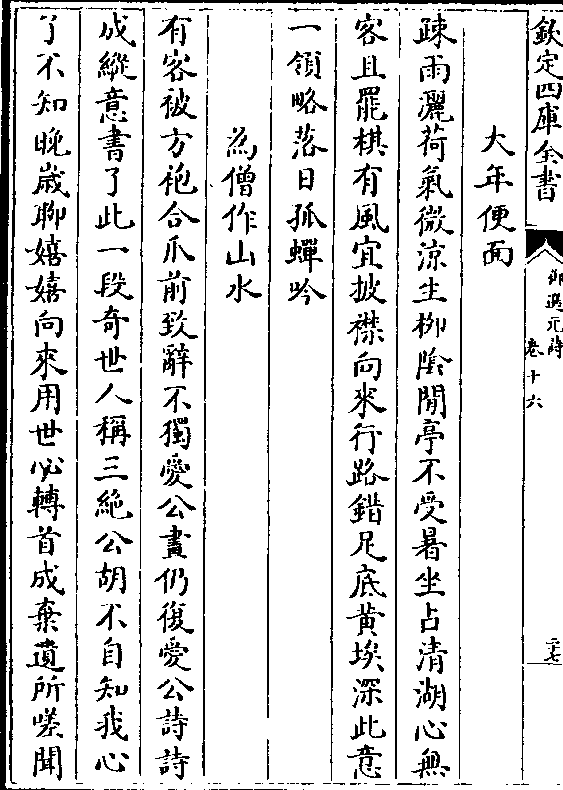 欽定四庫全書
御選元詩
卷十六
二七
大年便面
疎雨灑荷氣微涼生柳陰閒亭不受暑坐占清湖心無
客且罷棋有風宜披襟向來行路錯足底黃埃深此意
一領略落日孤蟬吟
為僧作山水
有客被方袍合爪前致辭不獨愛公畫仍復愛公詩詩
成縱意書了此一段奇世人稱三絶公胡不自知我心
了不知晚歲聊嬉嬉向來用世心轉首成棄遺所嗟聞